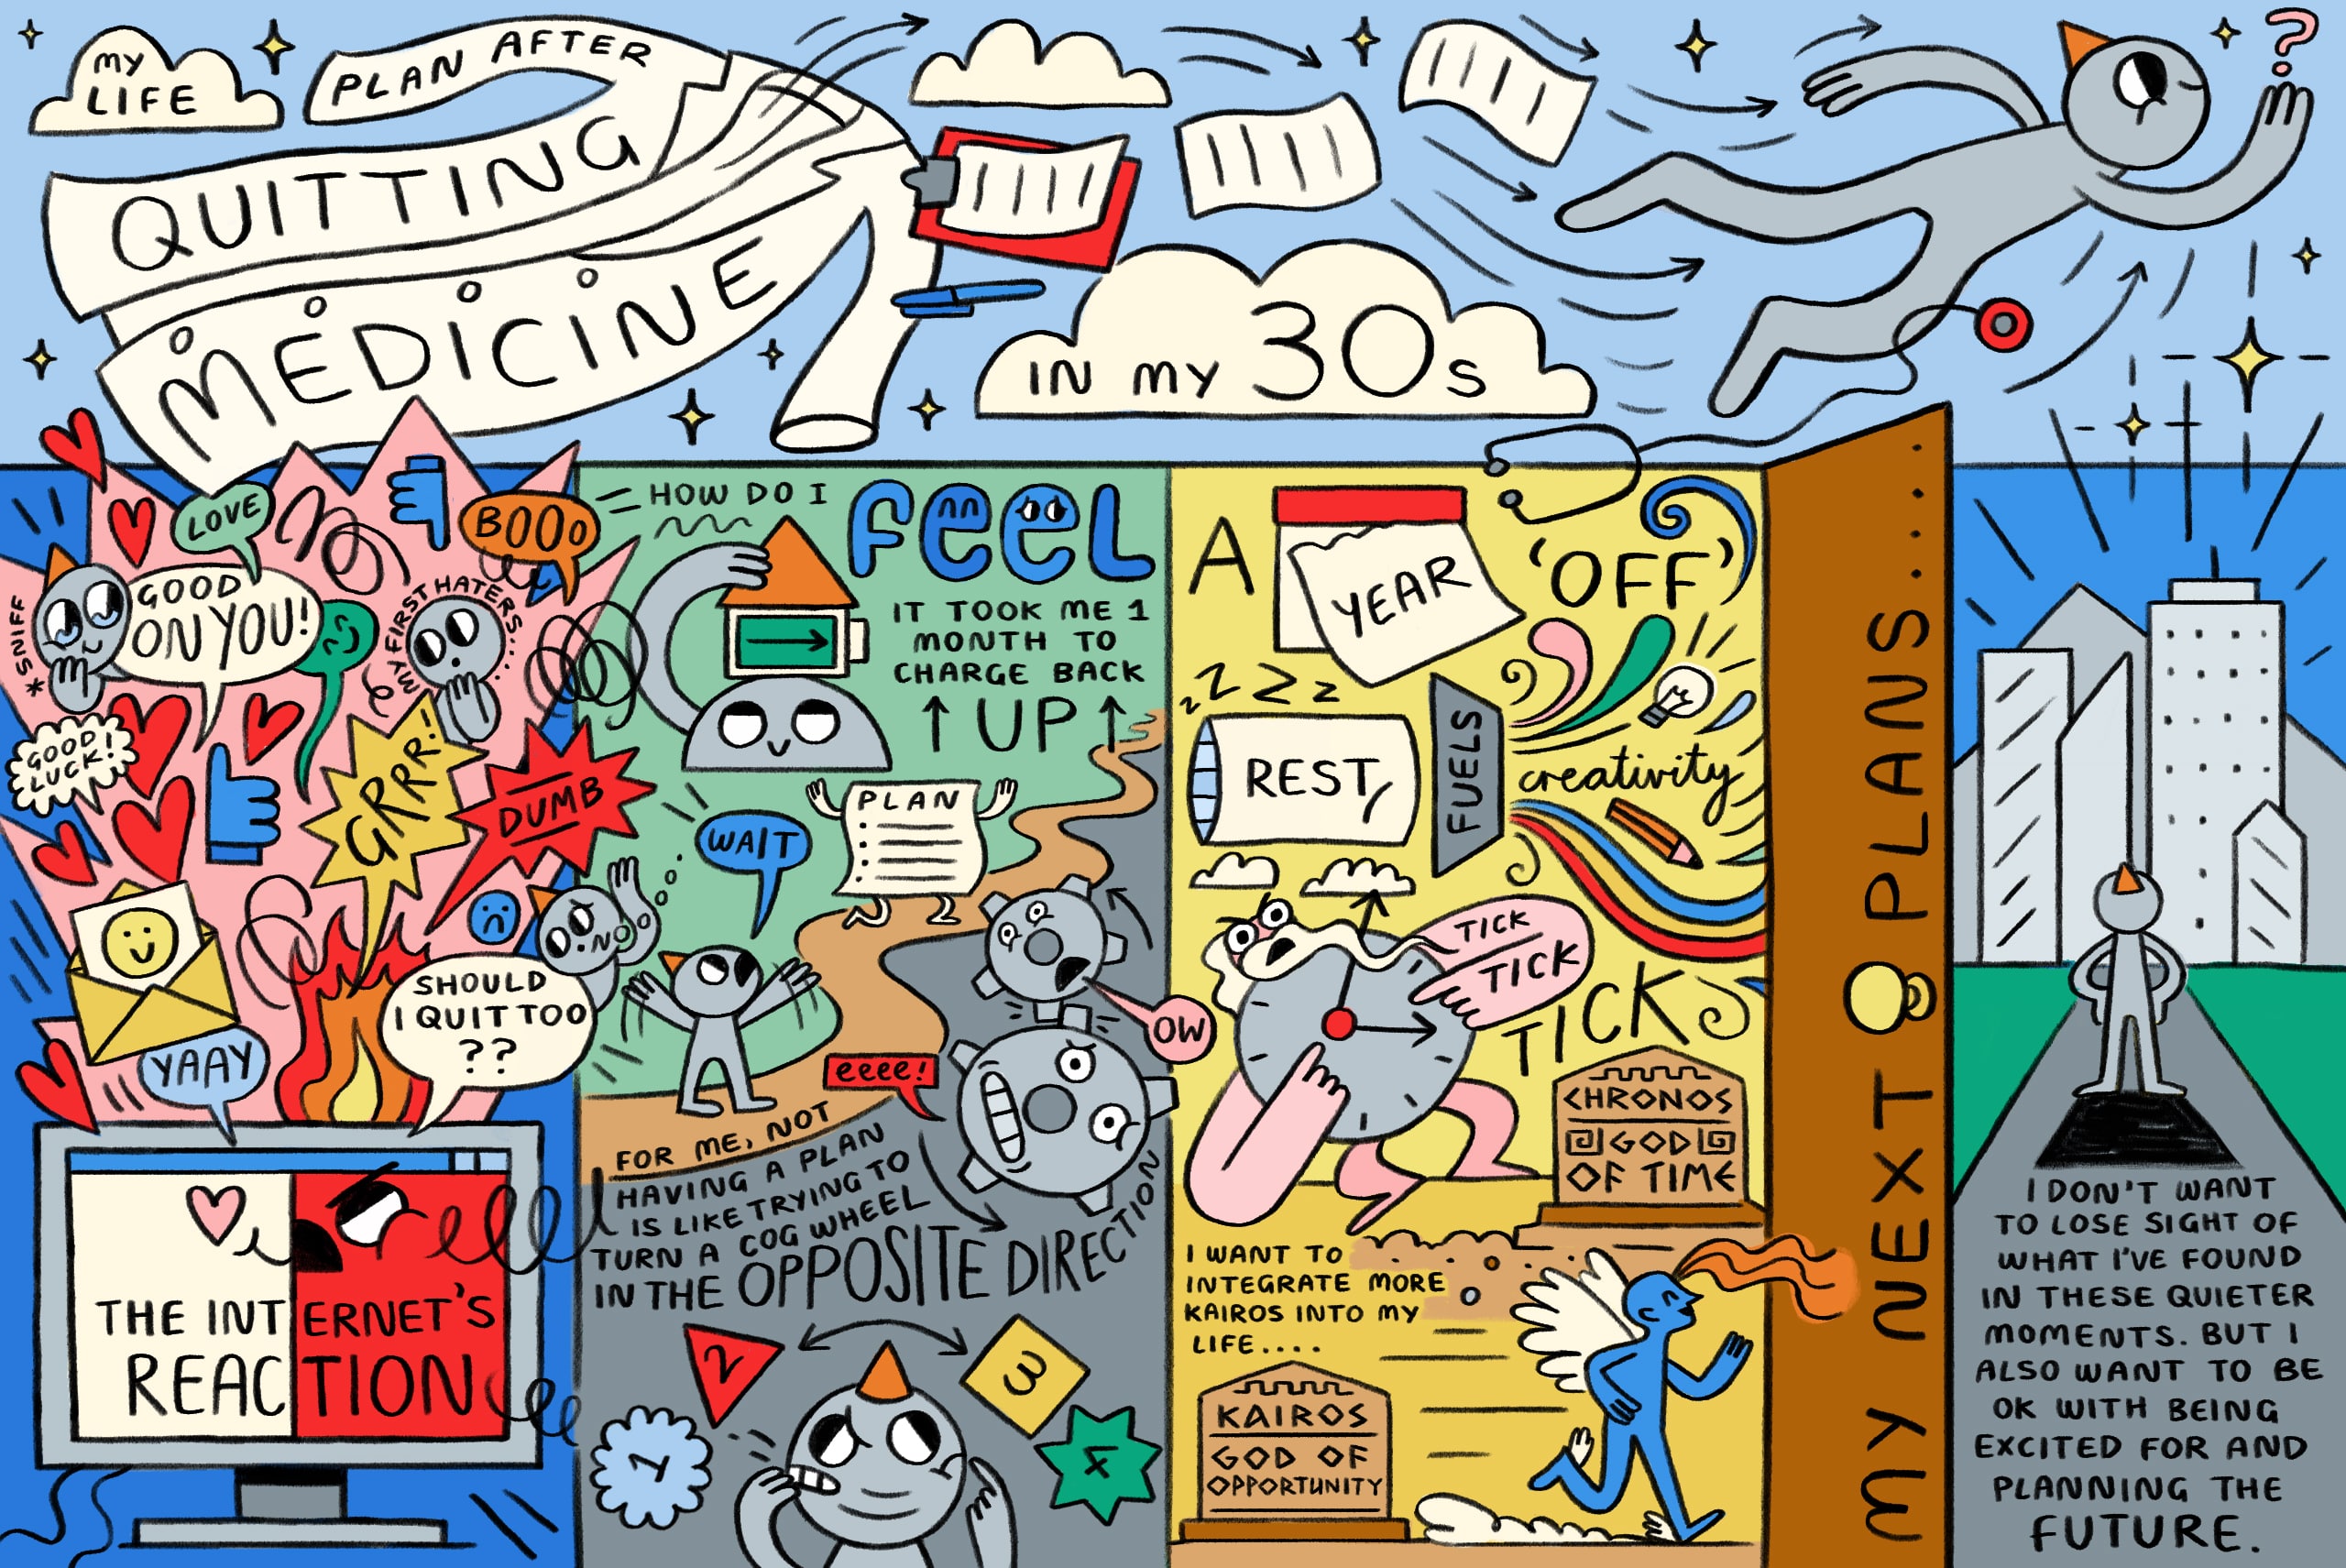 MY
LIFE
PLAN AFTER
QUITTING
MEDICINE
IN MY 30s
?
LOVE
BOOO
GOOD
ON YOU!
* SNIFF
MY FIRST HATERS.....
GOOD!
LUCK!
GRRR!
DUMB
NOOO
SHOULD
I QUIT TOO
??
YAAY
THE INTERNET'S
REACTION
HOW DO I
FEEL
IT TOOK ME 1
MONTH TO
CHARGE BACK
↑ UP ↑
WAIT
PLAN
OW
eeee!
FOR ME, NOT
HAVING A PLAN
IS LIKE TRYING TO
TURN A COG WHEEL
IN THE OPPOSITE DIRECTION
1
2
3
4
A
YEAR
'OFF'
zzzz
REST
FUELS
creativity
TICK
TICK
TICK
CHRONOS
GOD
OF TIME
I WANT TO
INTEGRATE MORE
KAIROS INTO MY
LIFE....
KAIROS
GOD OF
OPPORTUNITY
MY NEXT PLANS.....
I DON'T WANT
TO LOSE SIGHT OF
WHAT I'VE FOUND
IN THESE QUIETER
MOMENTS. BUT I
ALSO WANT TO BE
OK WITH BEING
EXCITED FOR AND
PLANNING THE
FUTURE.